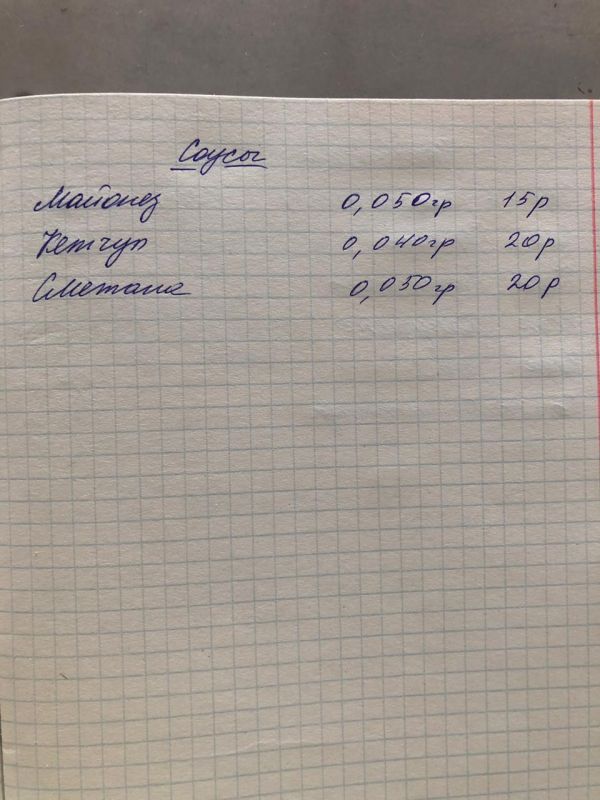 Соусы
Майонез 0,050гр 15р
Кетчуп 0,040гр 20р
Сметана 0,050гр 20р